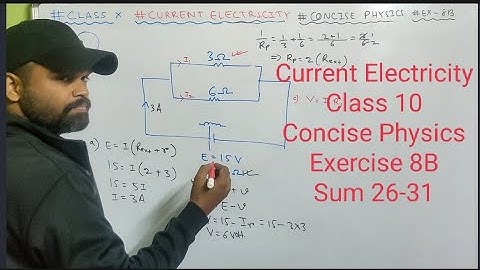 #CLASS X #CURRENT ELECTRICITY #CONCISE PHYSICS #EX-8B
1/Rp = 1/3 + 1/6 = 2+1/6 = 3/6 2
⇒ Rp = 2 (Rext)
3Ω
I1
6Ω
I2
3A
E = 15 V
a) E = I (Rext + r)
15 = I (2 + 3)
15 = 5I
I = 3A
c) V = I
E - V
V = 15 - Ir = 15 - 3×3
V = 6 Volt
Current Electricity
Class 10
Concise Physics
Exercise 8B
Sum 26-31